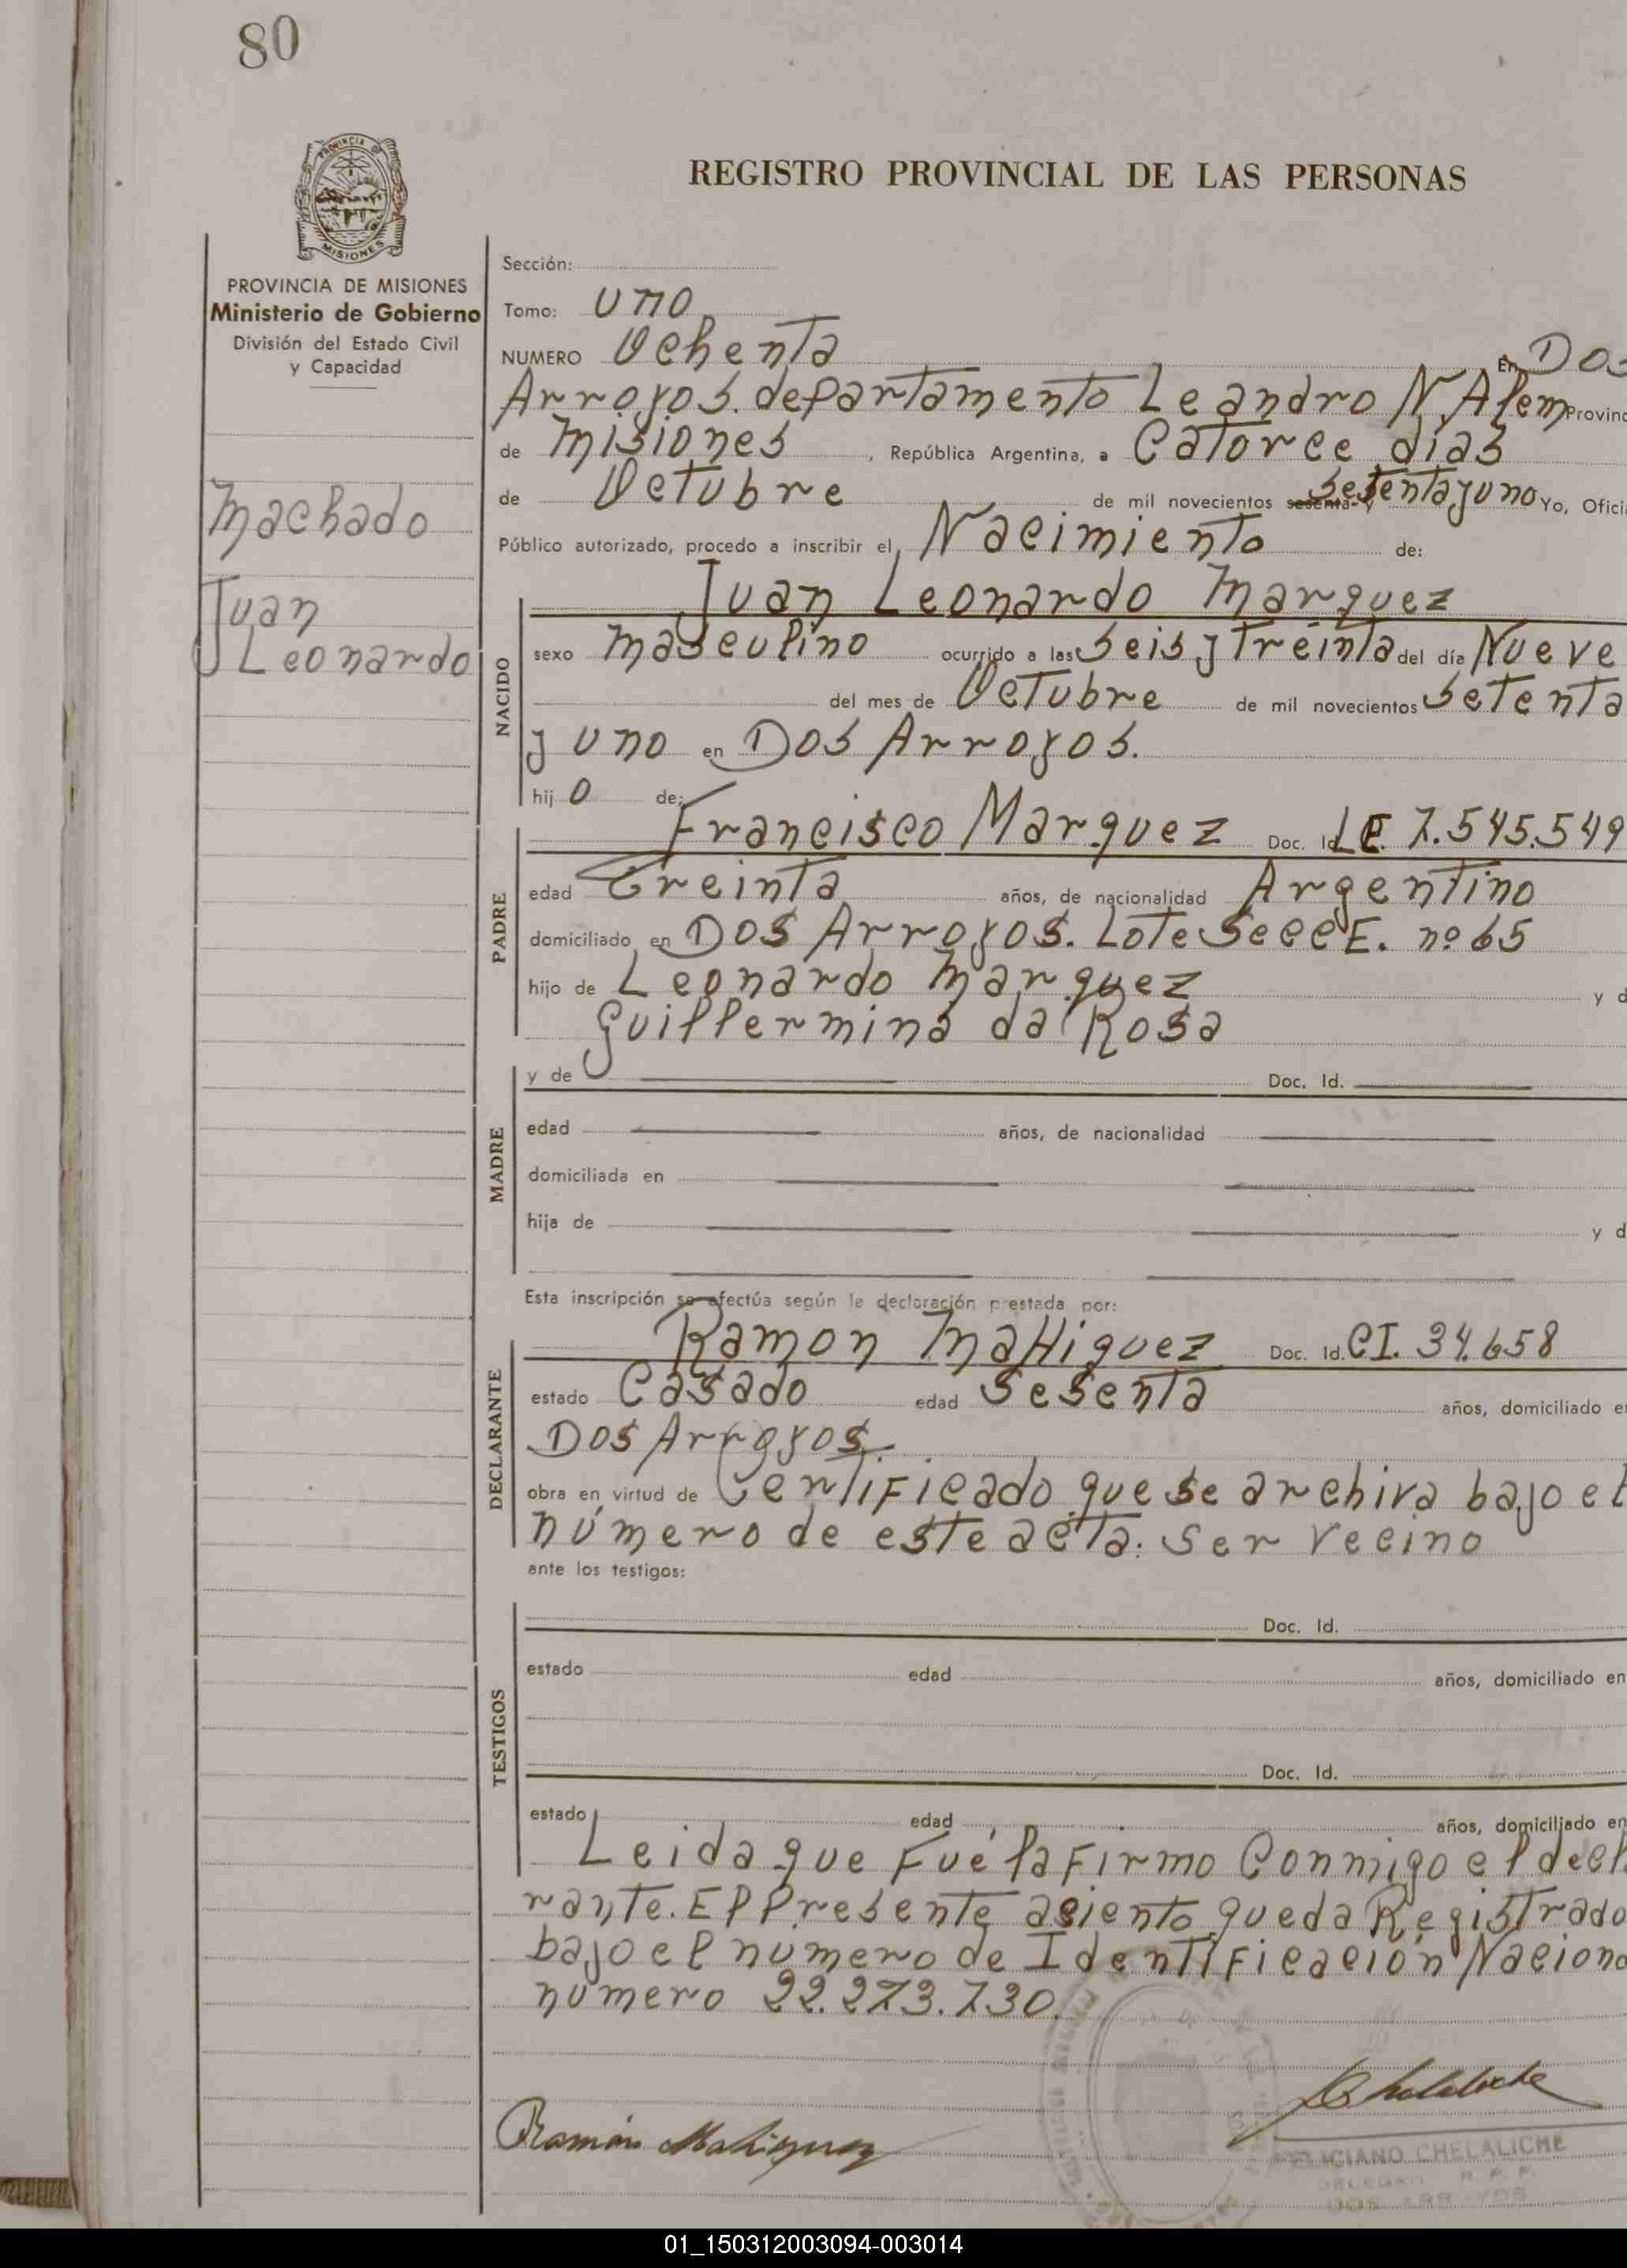 80
PROVINCIA DE
MISIONES
REGISTRO PROVINCIAL DE LAS PERSONAS
PROVINCIA DE MISIONES
Ministerio de Gobierno
División del Estado Civil
y Capacidad
Machado
Juan
Leonardo
Sección:
Tomo: uno
NUMERO Ochenta En Dos
Arroyos. departamento Leandro N Alem Provinc
de Misiones, República Argentina, a Catorce días
de Octubre de mil novecientos sesenta y Setenta y uno Yo, Ofici
Público autorizado, procedo a inscribir el Nacimiento de:
Juan Leonardo Marquez
NACIDO
sexo Masculino ocurrido a las Seis y Treinta del día Nueve
del mes de Octubre de mil novecientos Setenta
y uno en Dos Arroyos.
hijo de:
PADRE
Francisco Marquez Doc. Id. LE. 7.545.549
edad Treinta años, de nacionalidad Argentino
domiciliado en Dos Arroyos. Lote Secc E. nº 65
hijo de Leonardo Marquez y d
Guillermina da Rosa
MADRE
y de Doc. Id.
edad años, de nacionalidad
domiciliada en
hija de y d
Esta inscripción se efectúa según le declaración prestada por:
DECLARANTE
Ramon Mahiguez Doc. Id. CI. 34.658
estado Casado edad Sesenta años, domiciliado en
Dos Arroyos.
obra en virtud de Certificado que se archiva bajo el
número de este acta. Ser Vecino
ante los testigos:
TESTIGOS
Doc. Id.
estado edad años, domiciliado en
Doc. Id.
estado edad años, domiciliado en
Leida que Fué la Firmo Conmigo el decl
rante. El Presente asiento queda Registrado
bajo el numero de Identificación Naciona
número 22.273.730.
Ramón Mahiguez
Chelaliche
FELICIANO CHELALICHE
DOS ARROYOS
01_150312003094-003014